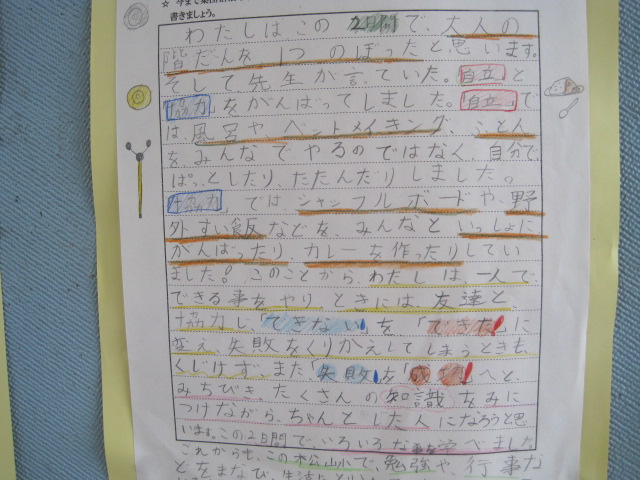 書きましょう。
わたしはこの2日間で、大人の
階だんを1つのぼったと思います。
そして先生が言っていた。「自立」と
「協力」をがんばってしました。「自立」で
は、風呂や、ベットメイキング、ことん
を、みんなでやるのではなく、自分で
ぱっとしたり、たたんだりしました。
「協力」ではシャッフルボードや、野
外すい飯などを、みんなといっしょに
がんばったり、カレーを作ったりしてい
ました!このことから、わたしは、一人で
できる事をやり、ときには、友達と、
協力し、「できない」を「できた」に
変え、失敗をくりかえしてしまうときも、
くじけず、また「失敗」を「成功」へと、
みちびき、たくさんの知識をみに
つけながら、ちゃんとした人になろうと思
います。この2日間でいろいろな事を学べました
これからも、この松山小で、勉強や、行事な
どをまなび、